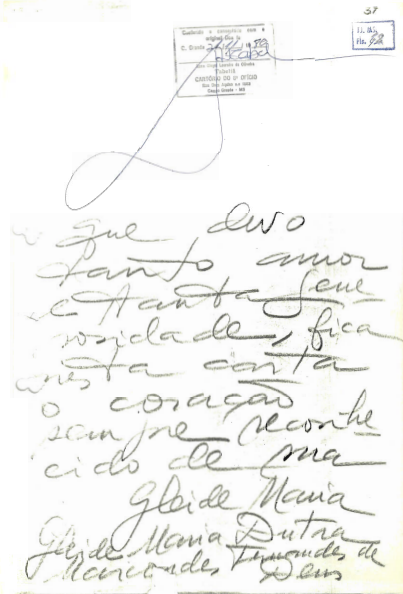 37
Confere e concorda com o
original Dou fé
C. Grande
Tabeliã
CARTÓRIO DO 5º OFÍCIO
Campo Grande - MS
que devo
tanto amor
e tanta gene-
rosidade, fica
nesta carta
o coração
sempre reconhe-
cido de sua
Gleide Maria
Gleide Maria Dutra
Marcondes Fernandes de
Deus